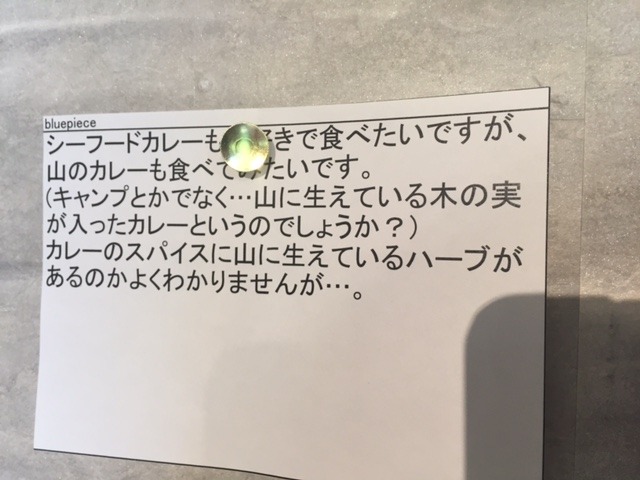 bluepiece
シーフードカレーも好きで食べたいですが、
山のカレーも食べてみたいです。
(キャンプとかでなく…山に生えている木の実
が入ったカレーというのでしょうか?)
カレーのスパイスに山に生えているハーブが
あるのかよくわかりませんが…。